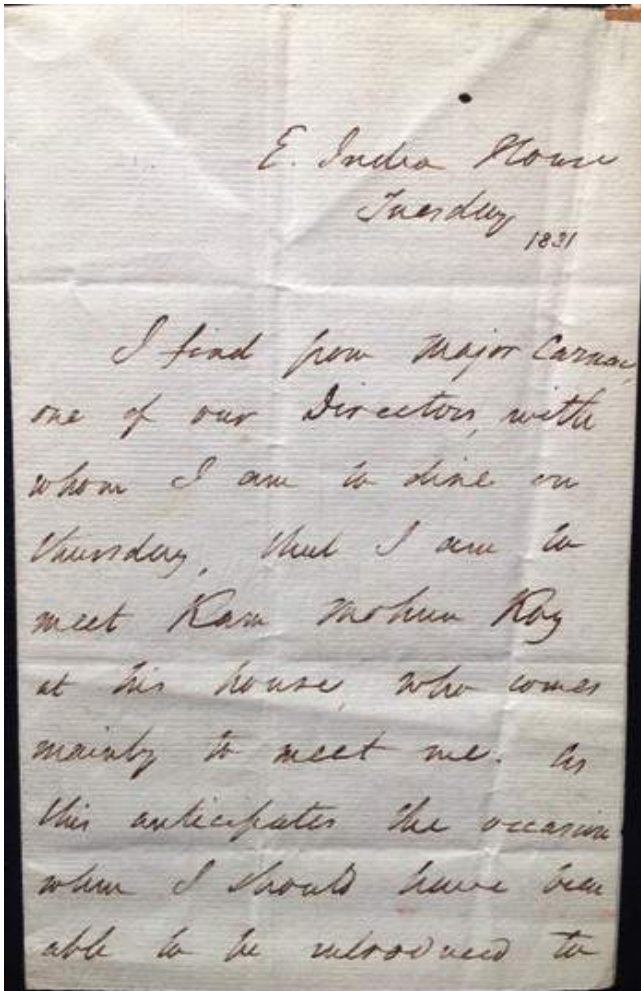 E. India House
Tuesday
1831
I find from Major Carnac,
one of our Directors, with
whom I am to dine on
Thursday, that I am to
meet Ram Mohun Roy
at his house, who comes
mainly to meet me. As
this anticipates the occasion
when I should have been
able to be introduced to